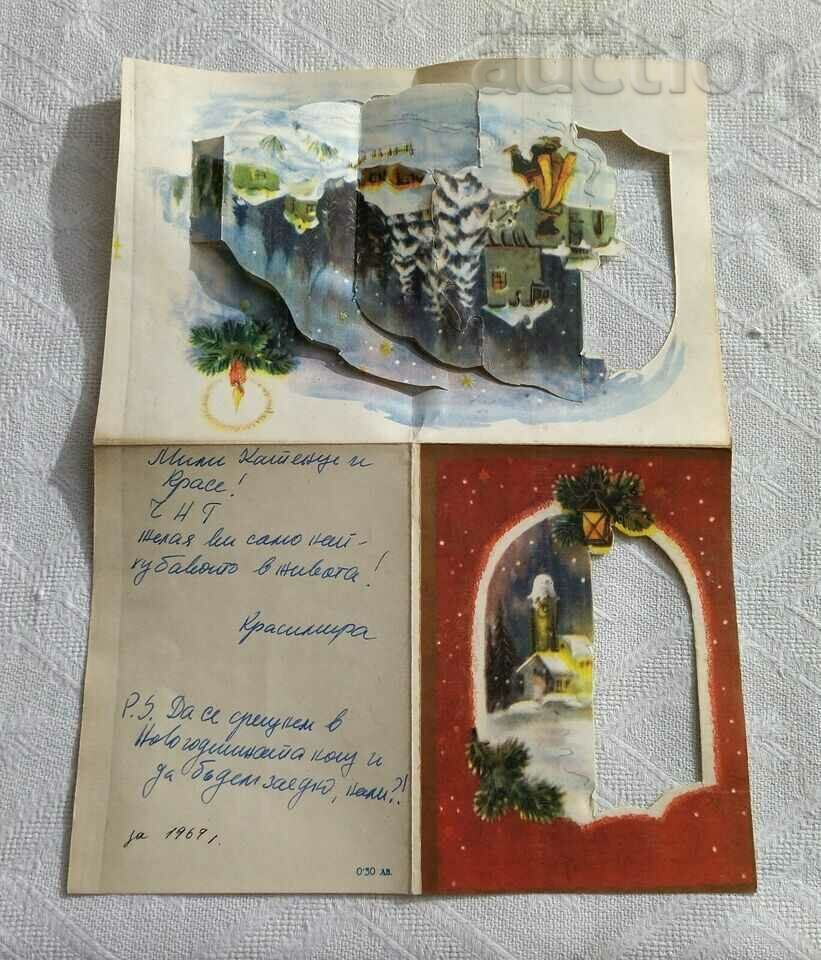 BALKAN
auction
Мили Катенце и
Красе!
Ч Н Г
желая ви само най-
хубавото в живота!
Красимира
P.S. Да се срещнем в
Новогодишната нощ и
да бъдем заедно, нали?!
за 1969 г.
0'30 лв.